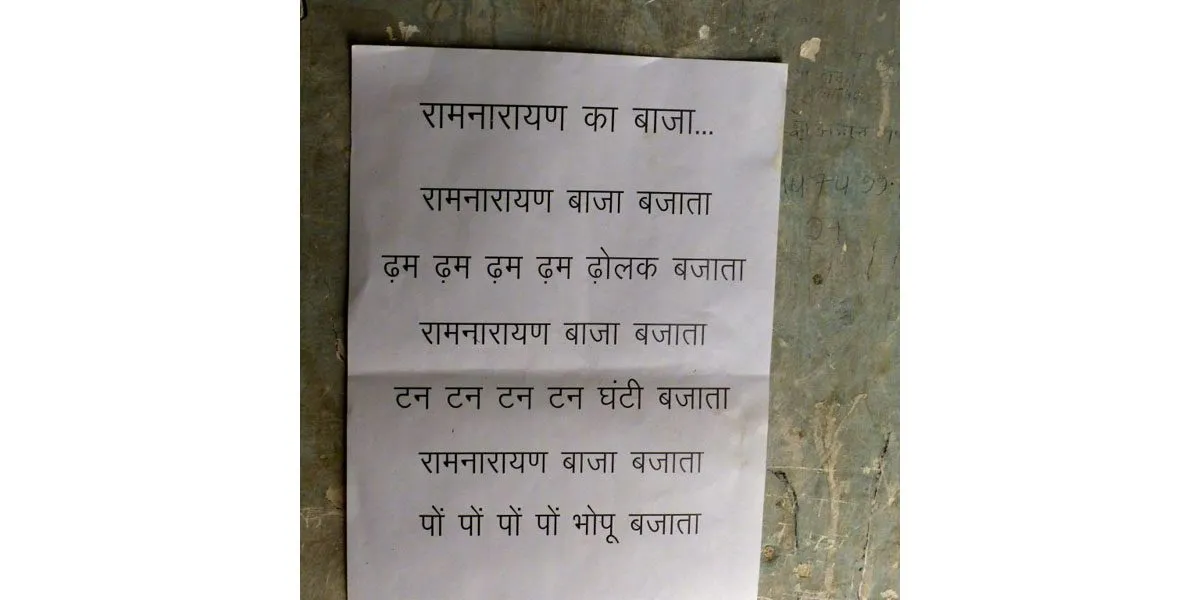 रामनारायण का बाजा...
रामनारायण बाजा बजाता
ढ़म ढ़म ढ़म ढ़म ढ़ोलक बजाता
रामनारायण बाजा बजाता
टन टन टन टन घंटी बजाता
रामनारायण बाजा बजाता
पों पों पों पों भोपू बजाता